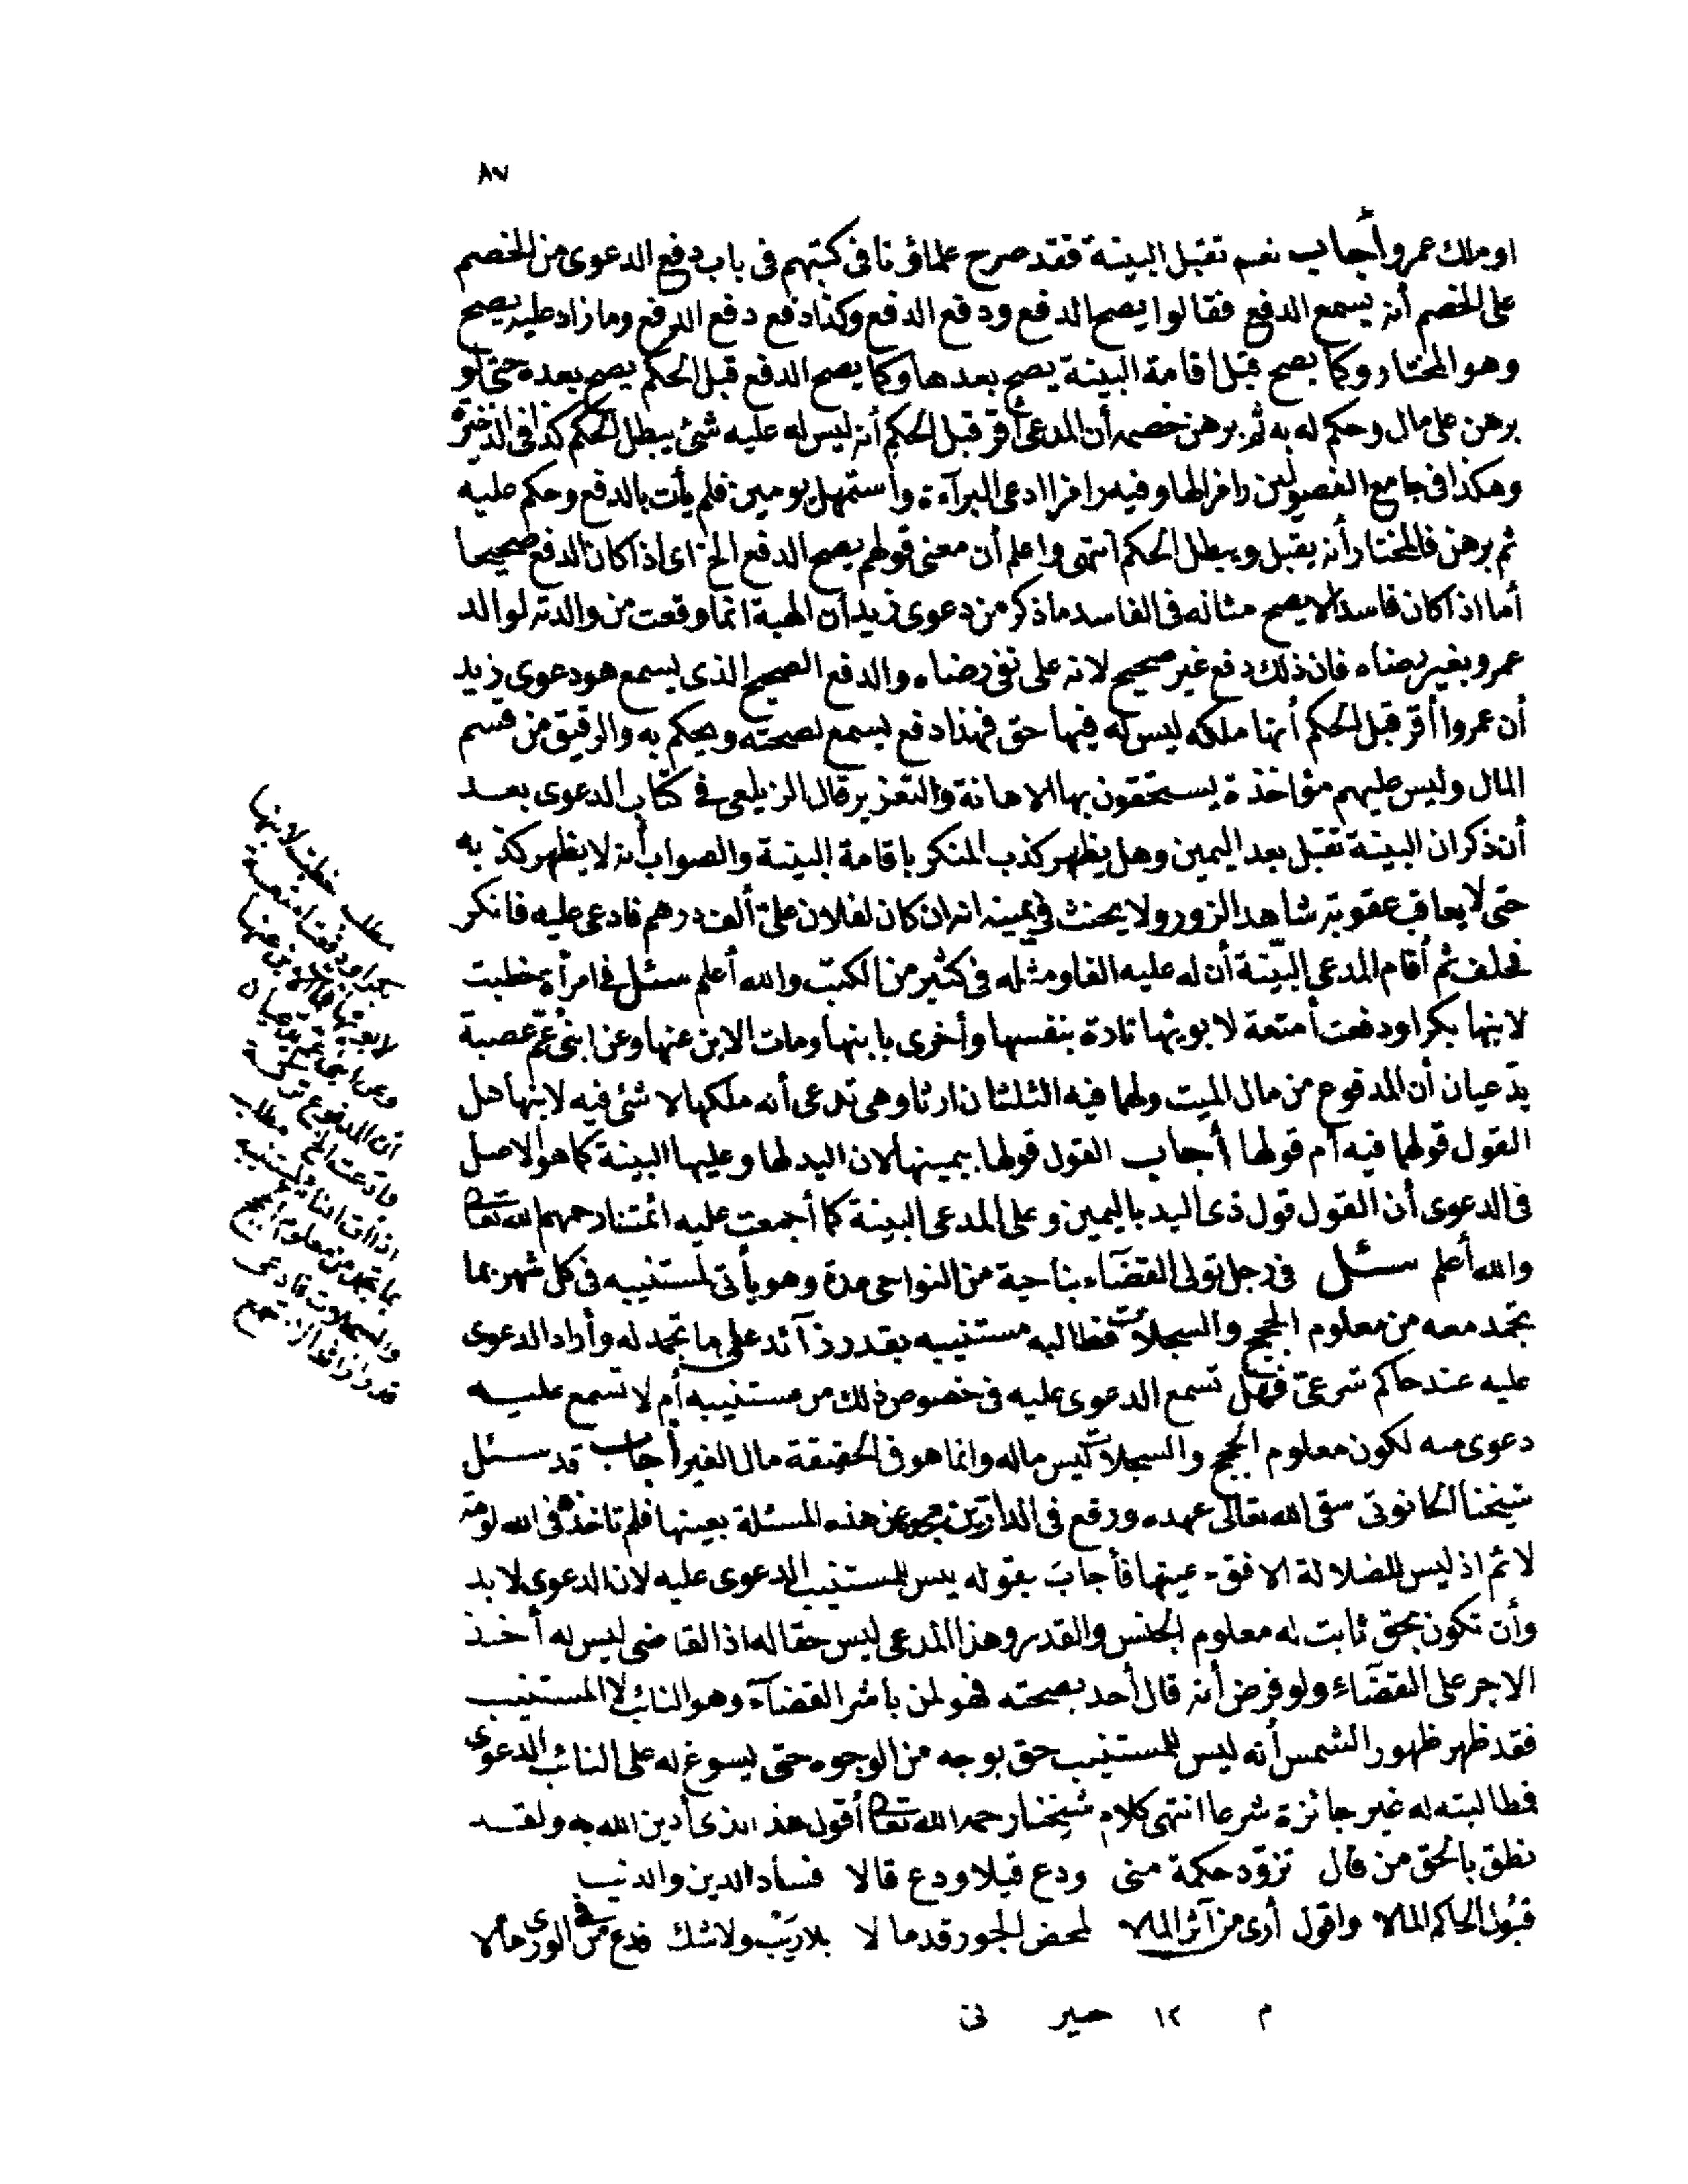 ٨٧
او ملك عمرو أجاب نعم تقبل البينة فقد صرح علماؤنا فى كتبهم فى باب دفع الدعوى من الخصم
على الخصم أنه يسمع الدفع فقالوا يصح الدفع ودفع الدفع وكذا دفع دفع الدفع وما زاد عليه يصح
وهو المختار وكما يصح قبل اقامة البينة يصح بعدها وكما يصح الدفع قبل الحكم يصح بعده حتى لو
برهن على مال وحكم له به ثم برهن خصمه أن المدعى أقر قبل الحكم أنه ليس له عليه شئ يبطل الحكم كذا فى الذخيرة
وهكذا فى جامع الفصولين رامزا لها وفيه رامزا ادعى البرآءة واستمهل يومين فلم يأت بالدفع وحكم عليه
ثم برهن فالمختار أنه يقبل ويبطل الحكم انتهى واعلم أن معنى قولهم يصح الدفع الخ اى اذا كان الدفع صحيحا
أما اذا كان فاسدا لا يصح مثاله فى الفاسد ما ذكر من دعوى زيد أن الهبة انما وقعت من والدته لوالد
عمرو بغير رضاه فان ذلك دفع غير صحيح لانه على نفى رضاه والدفع الصحيح الذى يسمع هو دعوى زيد
أن عمروا أقر قبل الحكم أنها ملكه ليس له فيها حق فهذا دفع يسمع لصحته ويحكم به والرقيق من قسم
المال وليس عليهم مؤاخذة يستحقون بها الاهانة والتعزير قال الزيلعى فى كتاب الدعوى بعد
أن ذكر ان البينة تقبل بعد اليمين وهل يظهر كذب المنكر باقامة البينة والصواب أنه لا يظهر كذبه
حتى لا يعاقب عقوبة شاهد الزور ولا يحنث فى يمينه انه ان كان لفلان علىّ ألف درهم فادعى عليه فانكر
فحلف ثم أقام المدعى البيّنة أن له عليه الفا ومثله فى كثير من الكتب والله أعلم سئل فى امرأة خطبت
لابنها بكرا ودفعت أمتعة لابويها تارة بنفسها وأخرى بابنها ومات الابن عنها وعن ابنى عمّ عصبة
يدّعيان أن المدفوع من مال الميت ولهما فيه الثلثان ارثا وهى تدعى أنه ملكها لا شئ فيه لابنها هل
القول قولهما فيه أم قولها أجاب القول قولها بيمينها لان اليد لها وعليها البينة كما هو الاصل
فى الدعوى أن القول قول ذى اليد باليمين وعلى المدعى البينة كما أجمعت عليه ائمتنا رحمهم الله تعالى
والله أعلم سئل فى رجل تولى القضآء بناحية من النواحى مدة وهو يأتى لمستنيبه فى كل شهر بما
تجمد معه من معلوم الحجج والسجلات فطالبه مستنيبه بقدر زآئد على ما تجمد له وأراد الدعوى
عليه عند حاكم شرعىّ فهل تسمع الدعوى عليه فى خصوص ذلك من مستنيبه أم لا تسمع عليه
دعوى منه لكون معلوم الحجج والسجلات ليس ماله وانما هو فى الحقيقة مال الغير أجاب قد سئل
شيخنا الحانوتى سقى الله تعالى عهده ورفع فى الدارين مجده عن هذه المسئلة بعينها فلم تاخذه فى الله لومة
لائم اذ ليس للضلالة الا فقء عينها فأجاب بقوله ليس للمستنيب الدعوى عليه لان الدعوى لا بد
وأن تكون بحق ثابت له معلوم الجنس والقدر وهذا المدعى ليس حقا له اذ القاضى ليس له أخذ
الاجر على القضآء ولو فرض أنه قال أحد بصحته فهو لمن باشر القضآء وهو النائب لا المستنيب
فقد ظهر ظهور الشمس أنه ليس للمستنيب حق بوجه من الوجوه حتى يسوغ له على النائب الدعوى
فطالبته له غير جائزة شرعا انتهى كلام شيخنا رحمه الله تعالى أقول هذا الذى أدين الله به ولقد
نطق بالحق من قال تزوّد حكمة منى ودع قيلا ودع قالا فساد الدين والدنيا
قبول الحاكم المالا واقول أرى من آثر المالا لمحض الجور قد مالا بلا ريب ولا شك فدع من فى الورى مالا
م ١٢ خير نى
مطلب خطبت لابنها
بكرا ودفعت امتعة
لابويها فمات الابن عنها
وعن ابنى عم يدعيان
أن المدفوع تركة
فادعت الخ مطلب
اذا أتى النائب لمستنيبه
بما تجمد من معلوم الحجج
والسجلات فادعى
قدرا زائدا لا تسمع